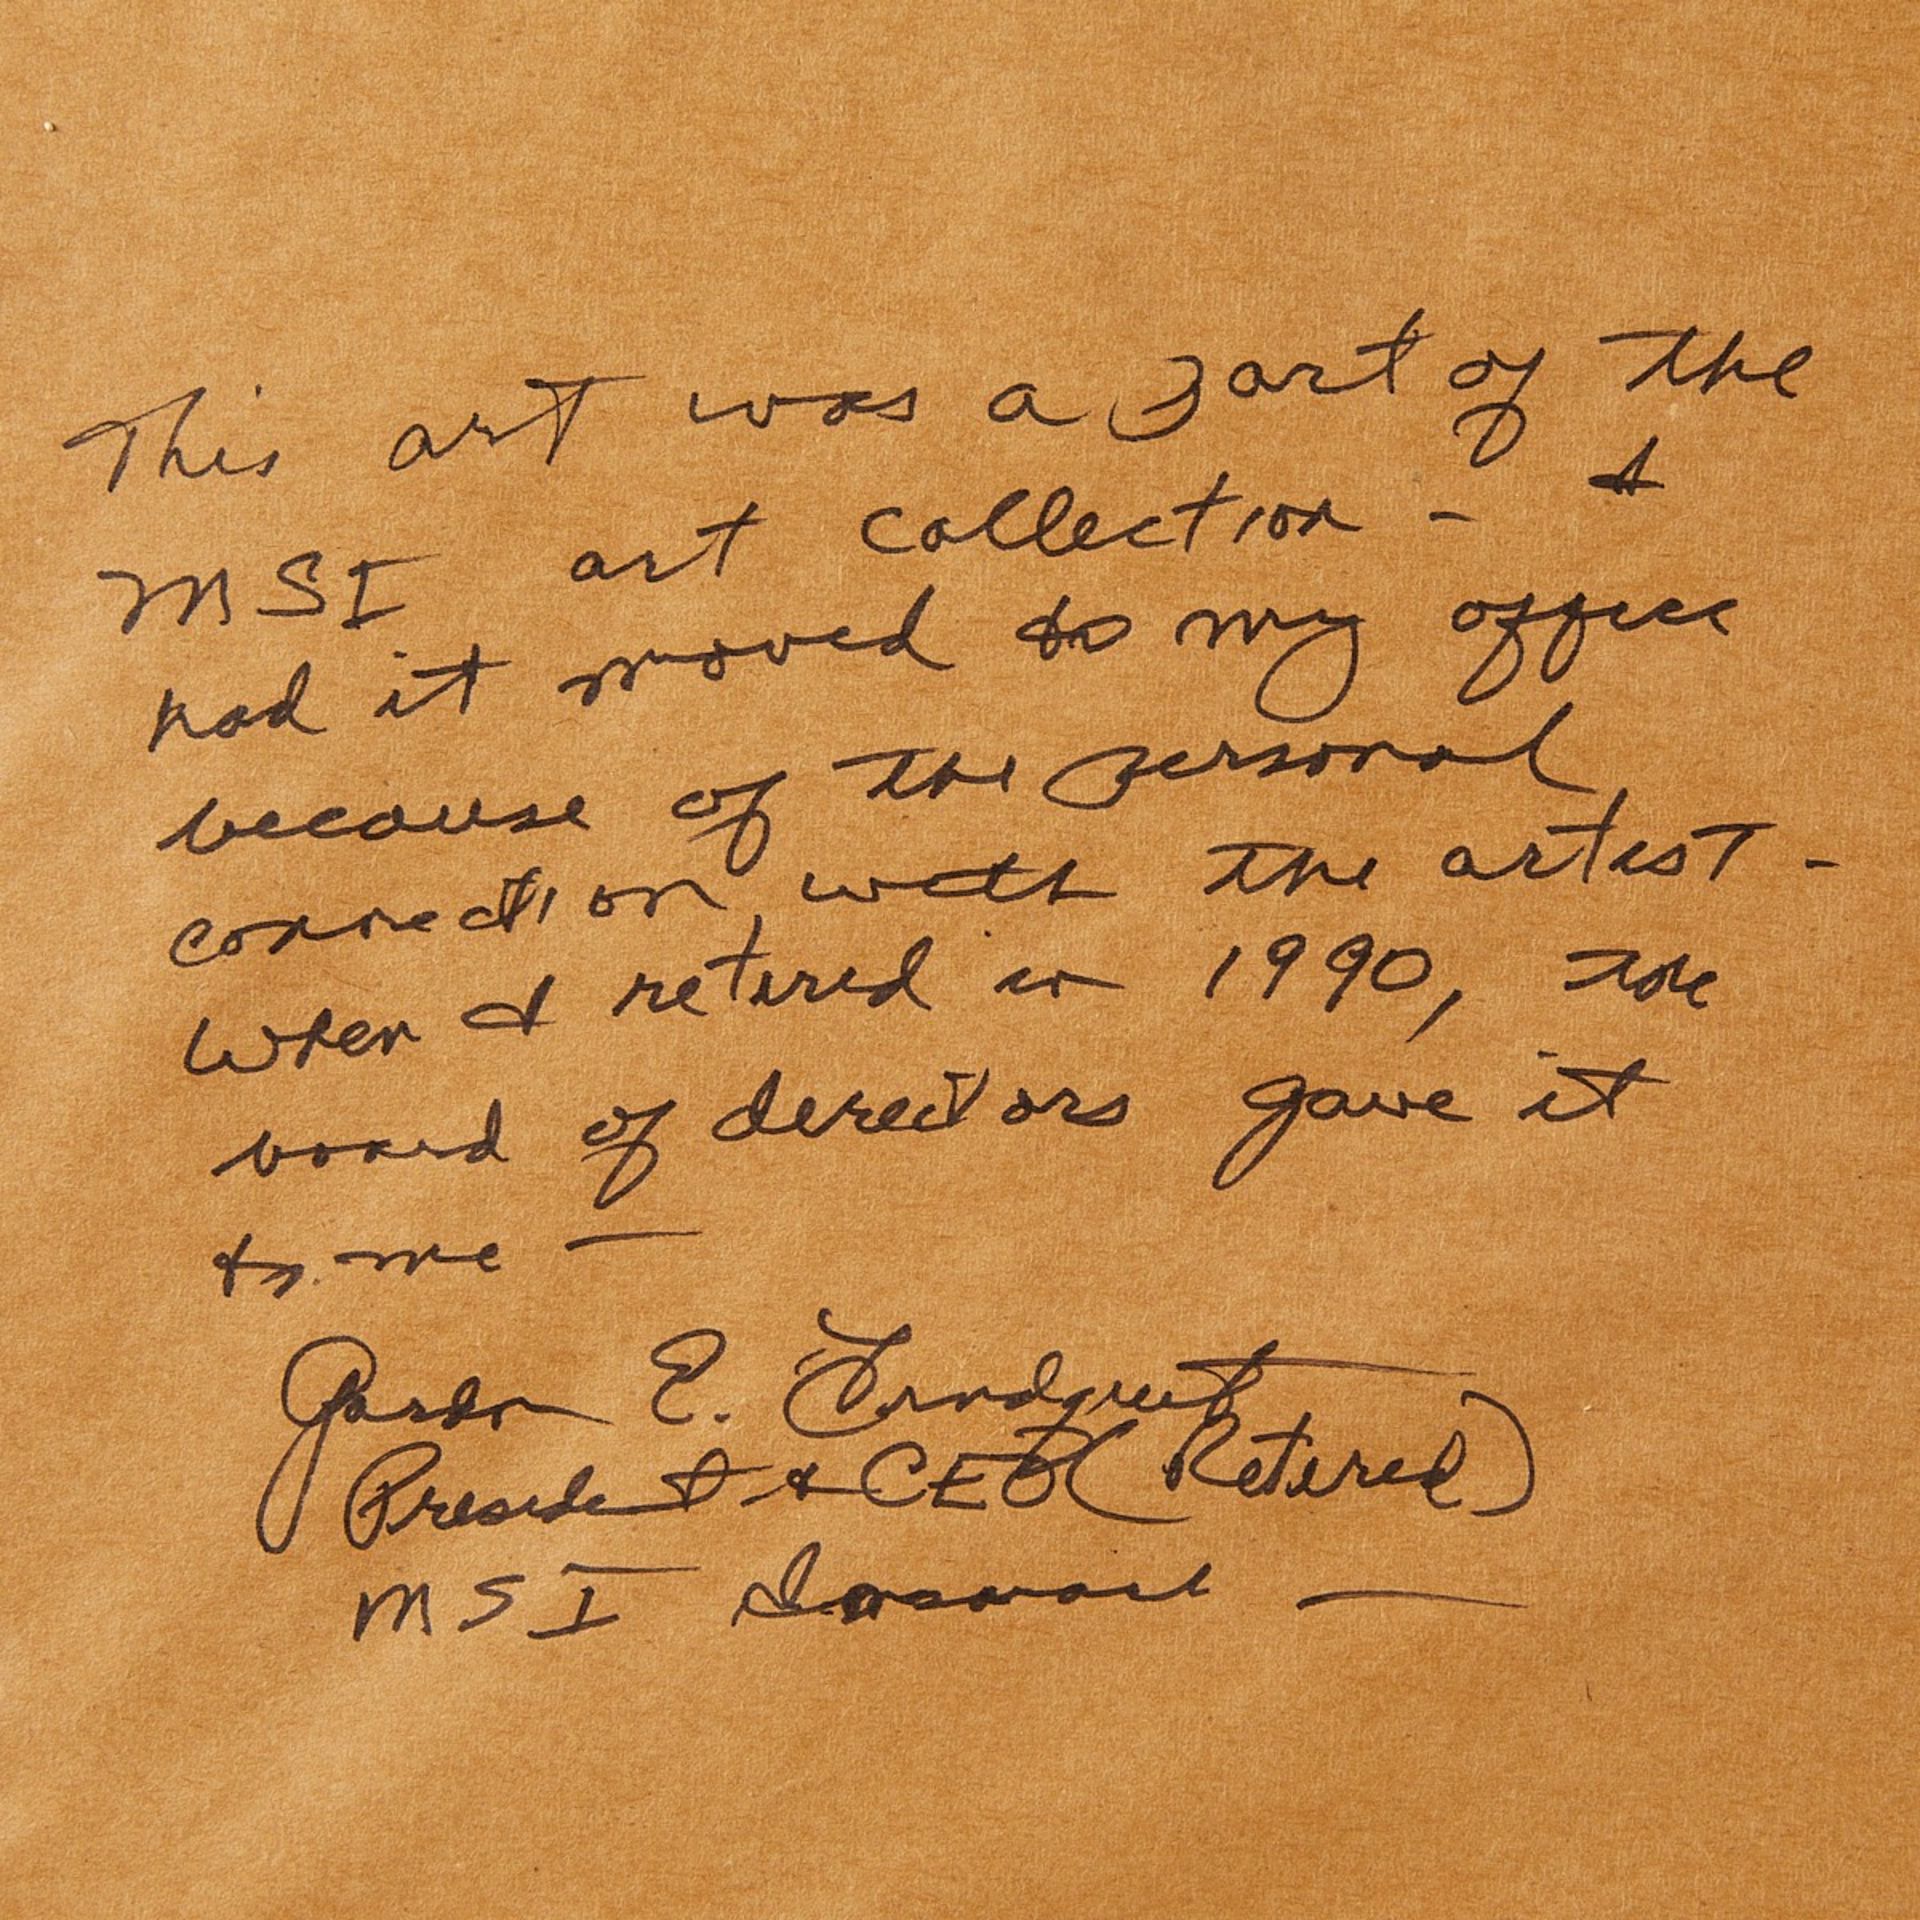 This art was a part of the
MSI art collection - I
had it moved to my office
because of the personal
connection with the artist -
When I retired in 1990, the
board of directors gave it
to me —
Gordon E. Lindquist
President & CEO (Retired)
MSI Insurance —